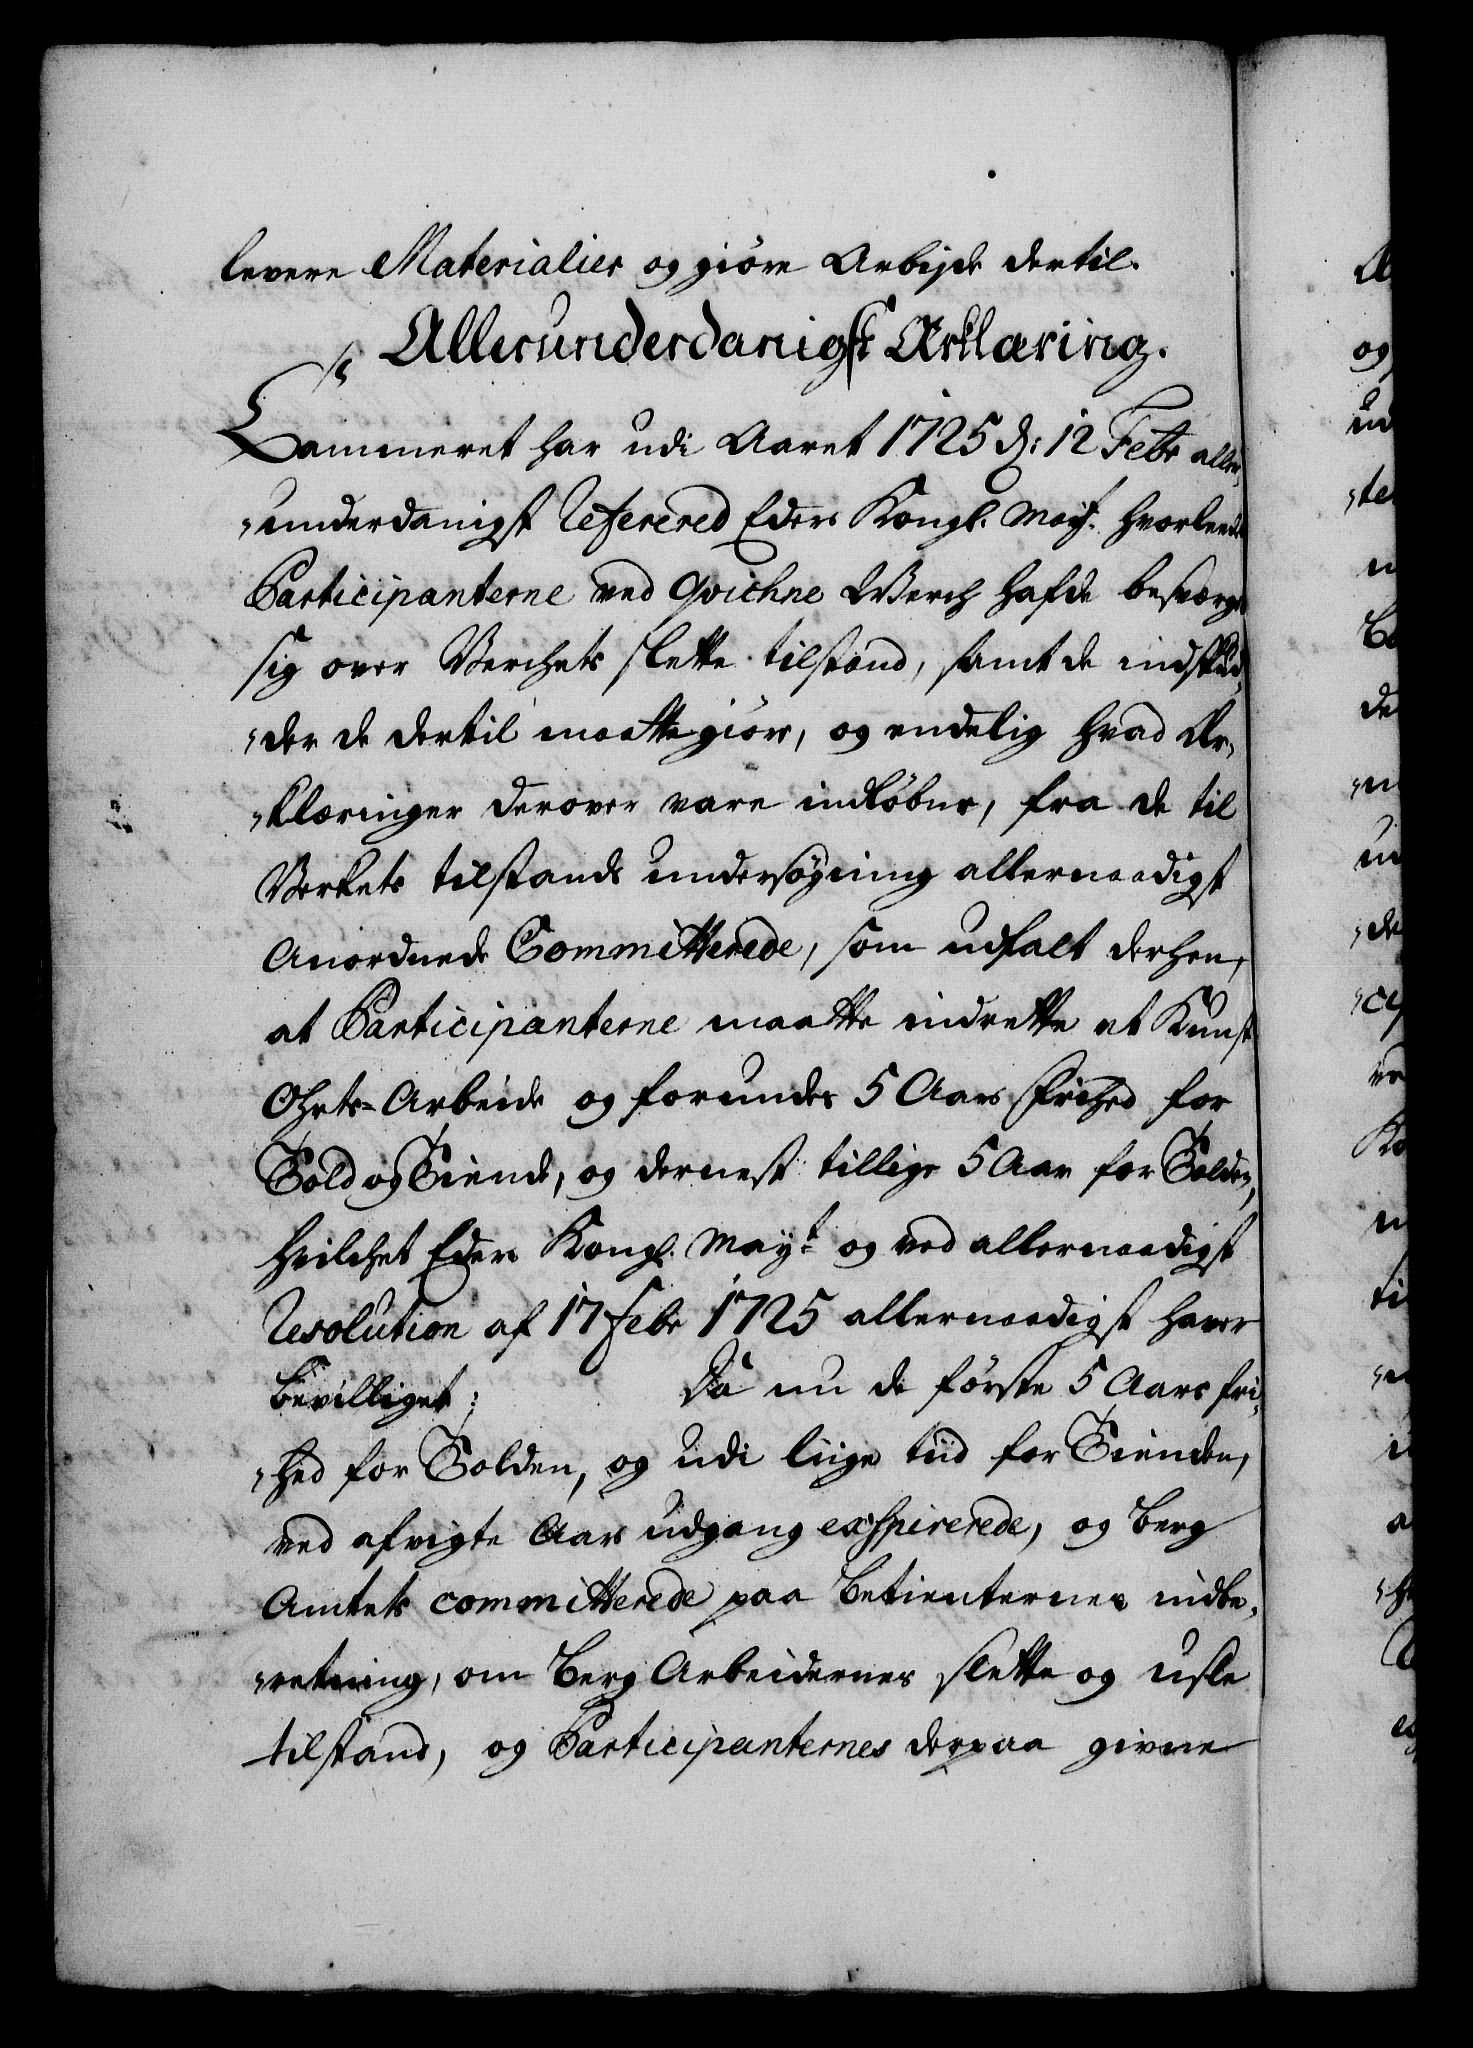 levere Materialier og giöre Arbejde dertil.
Allerunderdanigst Ærklæring.
Cammeret har udi Aaret 1725 d: 12 Febr aller„
„underdanigst Referered Eders Kongl. Mayt. hvorleedes
Participanterne ved Qvichne Werch hafde besværget
sig over Verchets slette tilstand, samt de indskud„
„der de dertil maatte giöre, og endelig hvad Er„
„klæringer derover vare indlöbne, fra de til
Verkets tilstands undersögning allernaadigst
Anordnede Committerede, som udfalt derhen,
at Participanterne maatte indrette et Kunst
Ohrts-Arbeide og forundes 5 Aars Frihed for
Told og Tiende, og dernest tillige 5 Aar for Tolden,
hvilchet Eders Kongl. Mayt. og ved allernaadigst
Resolution af 17 Febr 1725 allernaadigst haver
bevilliget; Da nu de förste 5 Aars fri„
„hed for Tolden, og udi liige tiid for Tienden,
ved afvigte Aars udgang exspirerede, og Berg
Amtets committerede paa Betienternes indbe„
„retning, om Berg Arbeidernes slette og usle
tilstand, og Participanternes derpaa givne